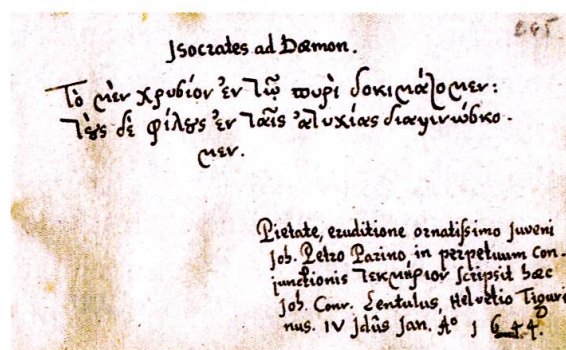 Jsocrates ad Dæmon.
Τὸ μὲν χρυσίον ἐν τῷ πυρὶ δοκιμάζομεν:
τοὺς δὲ φίλους ἐν ταῖς ἀτυχίας διαγινώσκο-
μεν.
Pietate, eruditione ornatiſsimo Juveni
Joh. Petro Parino, in perpetuum con-
junctionis τεκμήριον ſcripsit hæc
Joh. Conr. Lentulus, Helvetio Tiguri
nus. IV Jdûs Jan. Aº 1644.